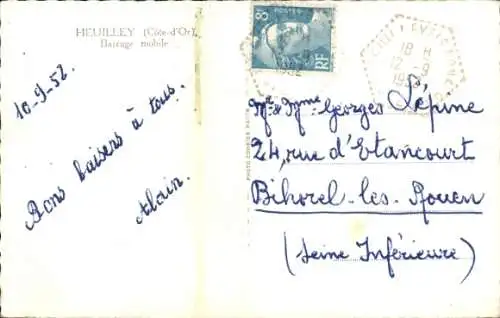 HEUILLEY (Côte-d'Or)
Barrage mobile
10-9-52.
Bons baisers à tous.
Alain.
8F
RF
18 H
12-9
1952
Mr & Mme Georges Lépine
24, rue d'Etancourt
Bihorel-les-Rouen
(Seine Inférieure)